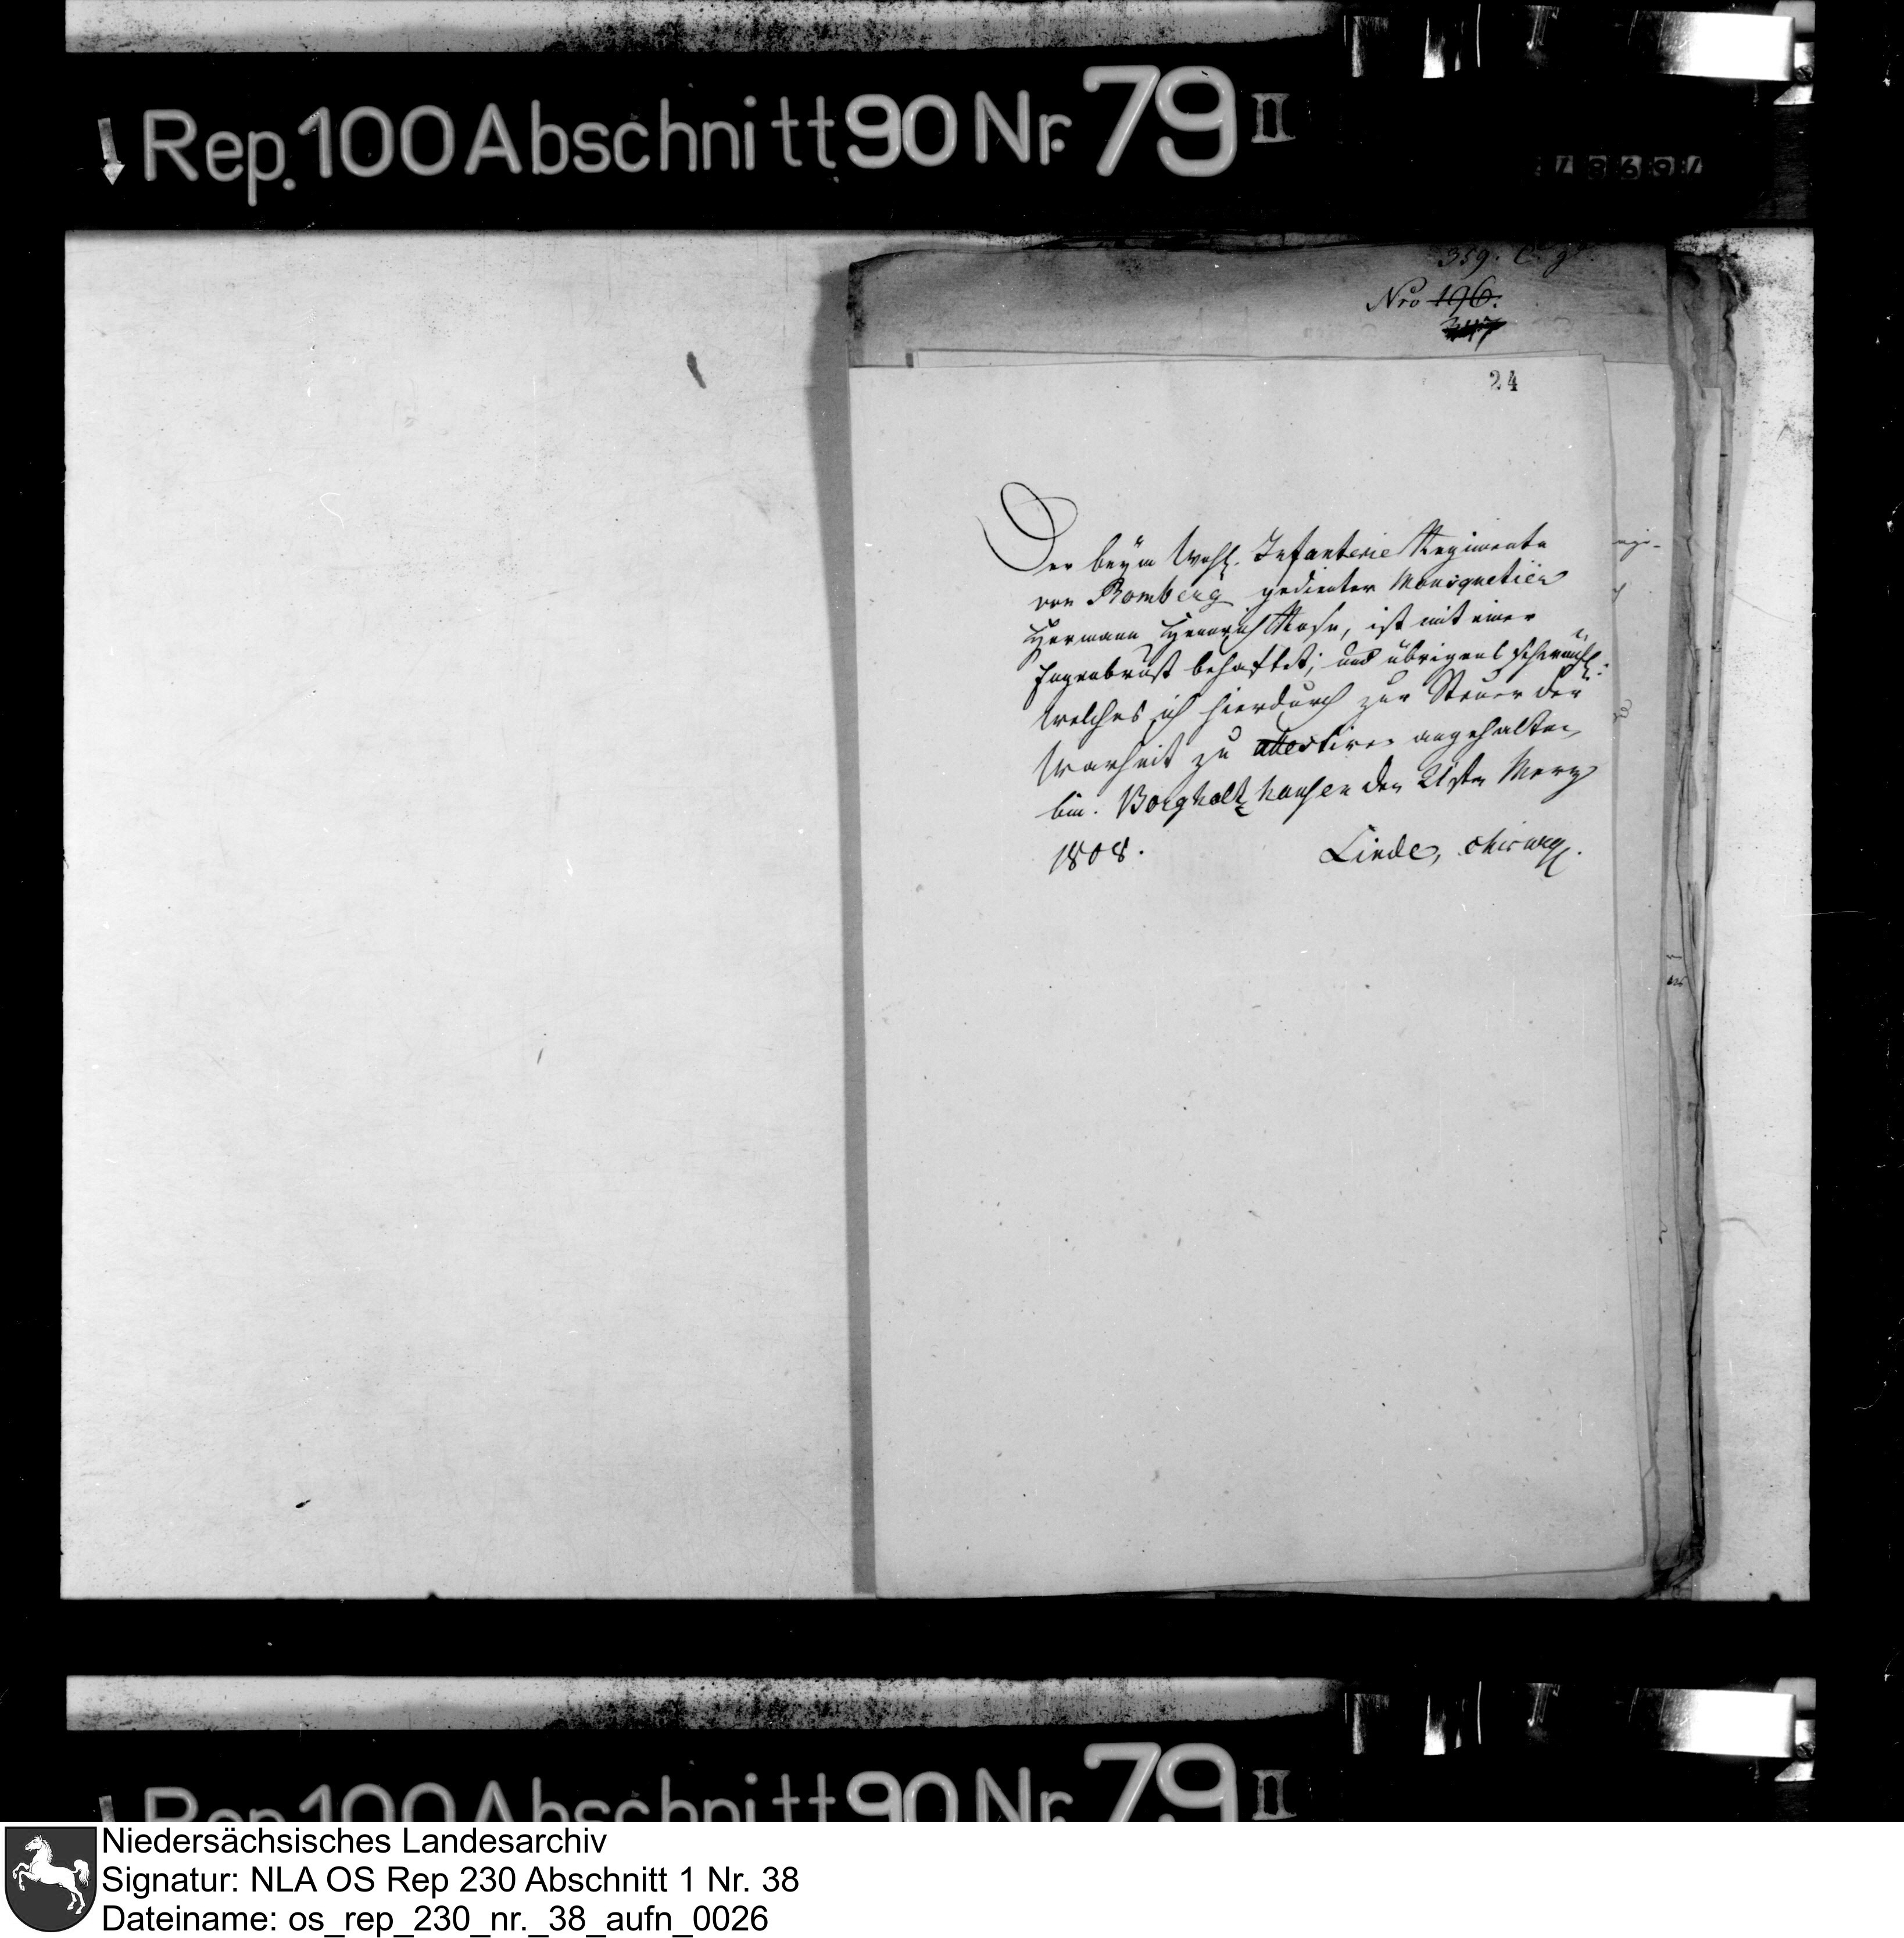 Rep. 100 Abschnitt 90 Nr. 79 II
359.
Nro 196.
24
Der beym Wohl. Infanterie Regimente
von Romberg gedienter Mousquetier
Hermann Henrich Rose, ist mit einer
Engenbrust behaftet; und übrigens schwächl.
welches ich hierdurch zur Steuer der
Warheit zu attestiren angehalten
bin. Borgholtzhausen den 21sten Merz
1808. Linde, chirurg.
Rep. 100 Abschnitt 90 Nr. 79 II
Niedersächsisches Landesarchiv
Signatur: NLA OS Rep 230 Abschnitt 1 Nr. 38
Dateiname: os_rep_230_nr._38_aufn_0026